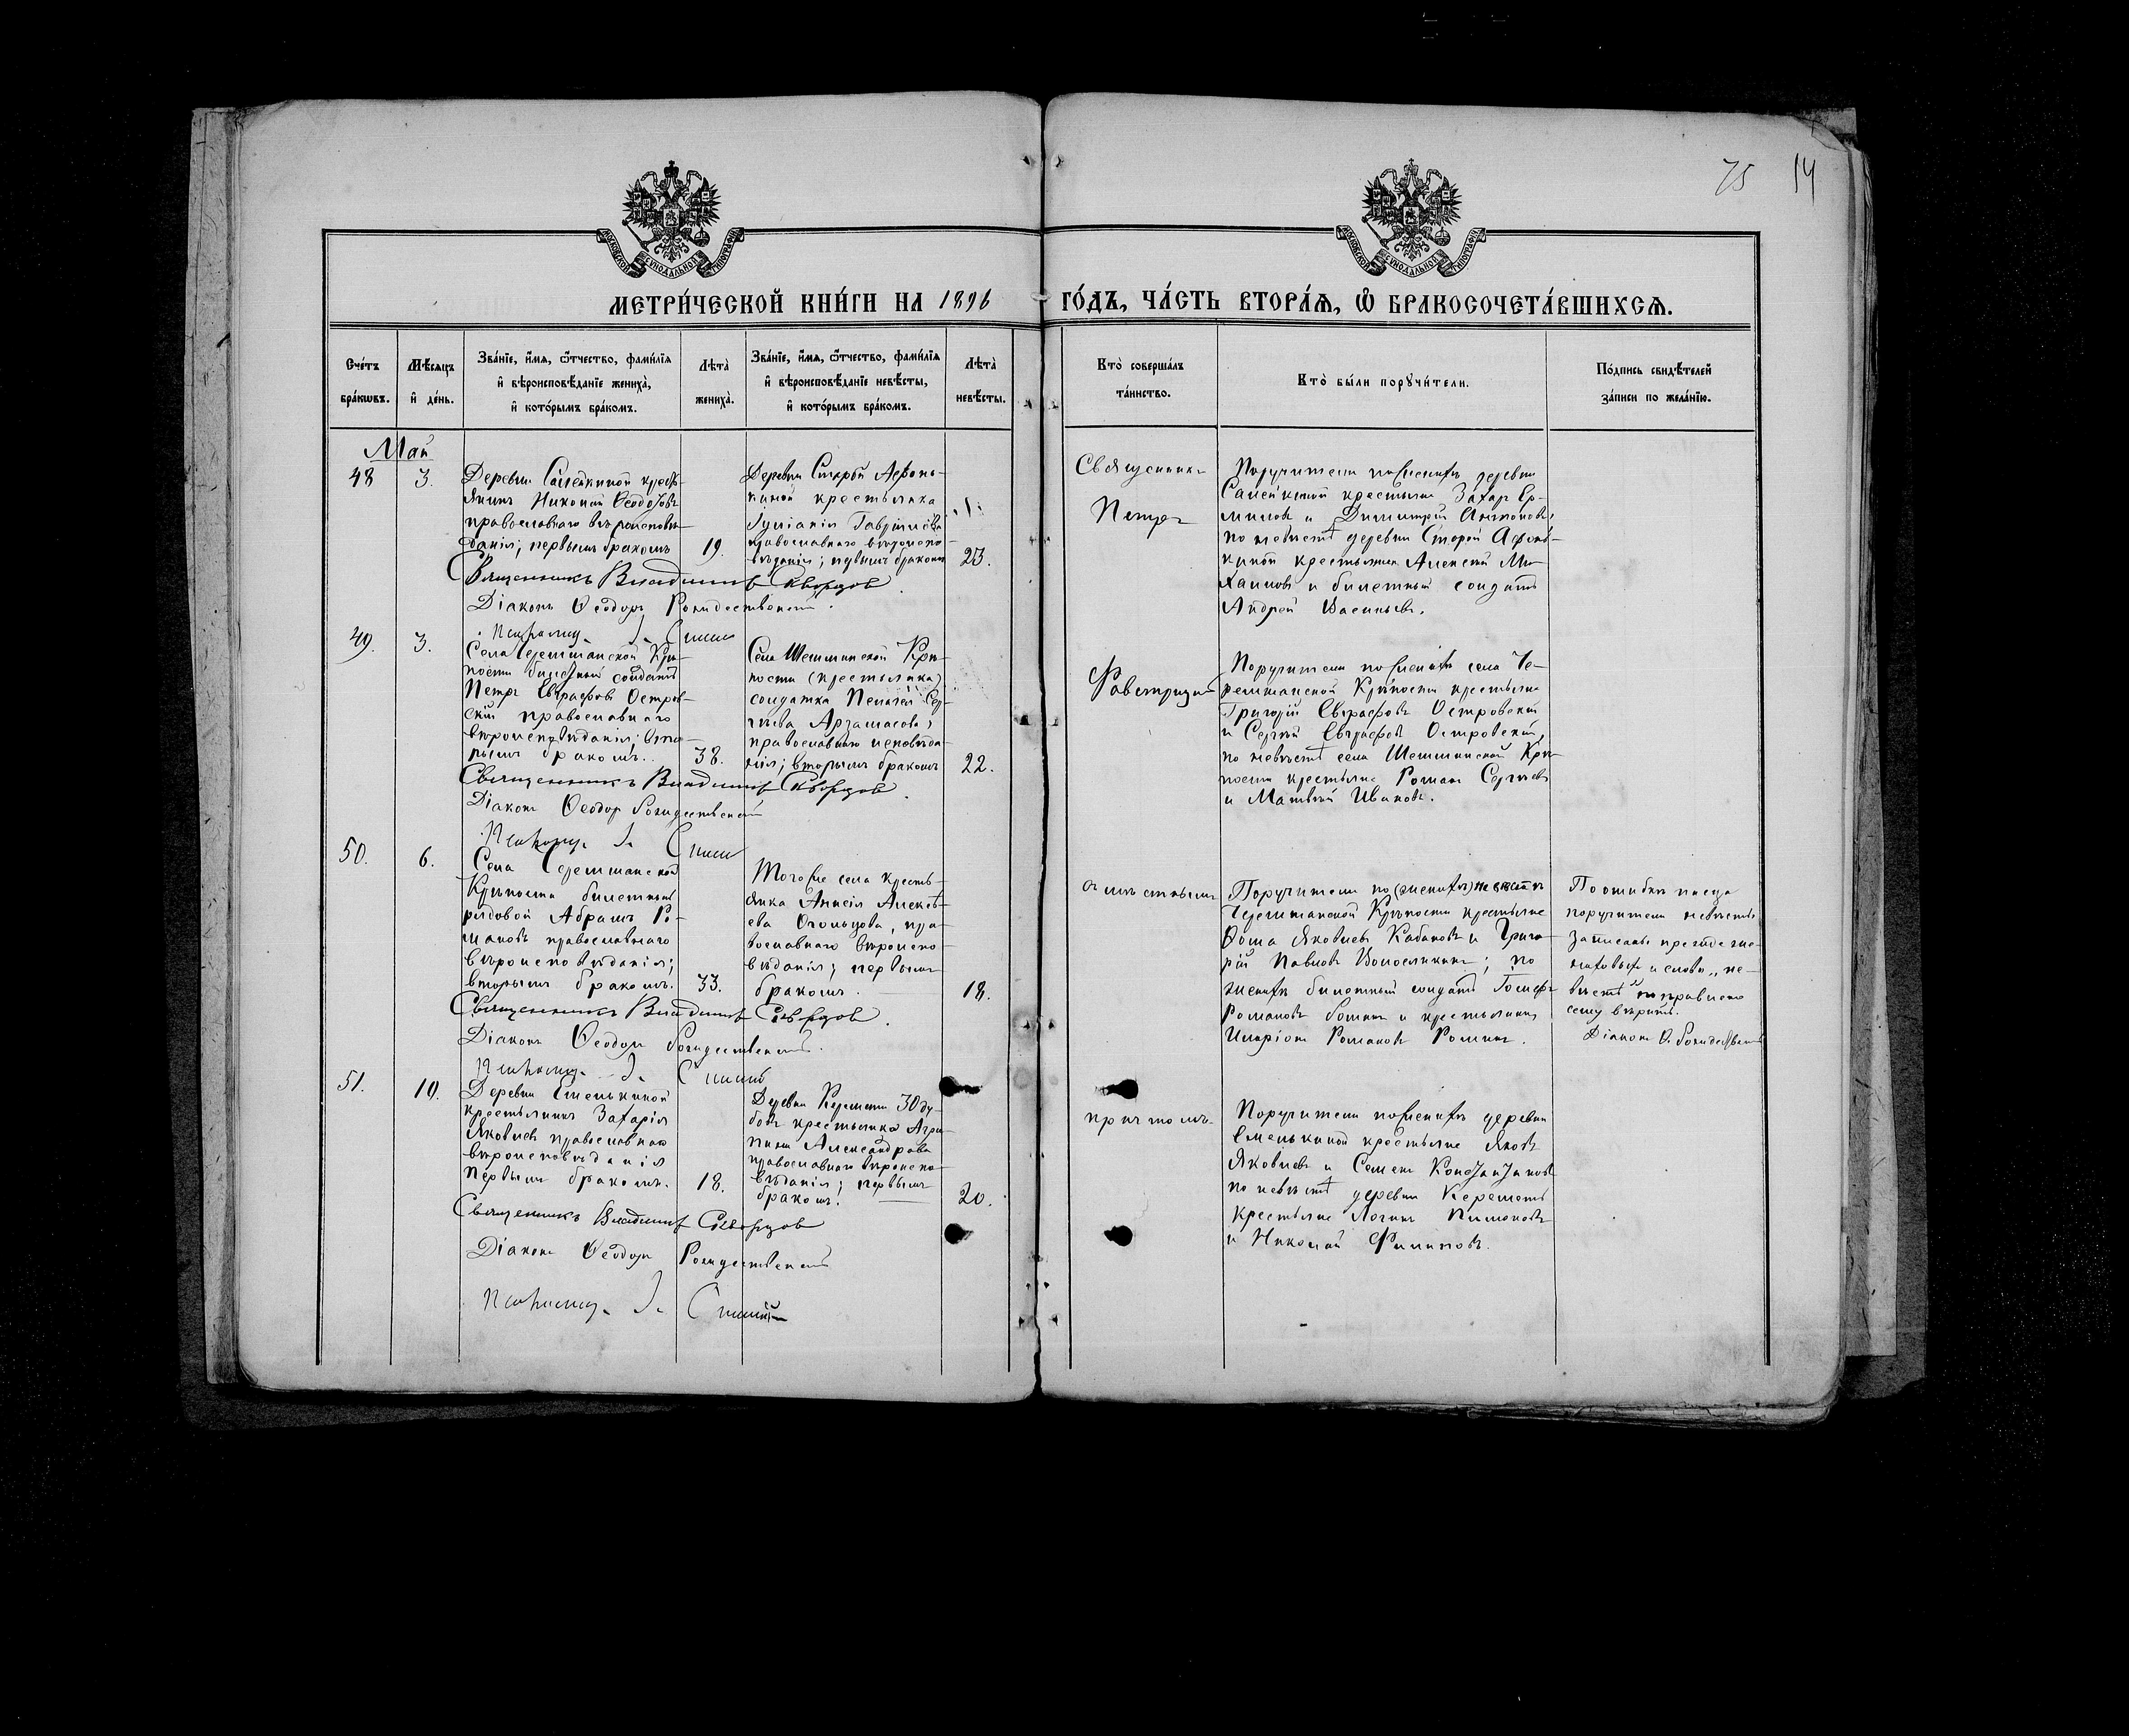 75 14
МЕТРИ́ЧЕСКОЙ КНИ́ГИ НА 1896 ГО́ДЪ, ЧА́СТЬ ВТОРА́Я, Ѡ҆ БРАКОСОЧЕТА́ВШИХСЯ.
Сче́тъ
бра́кѡвъ.
Мѣ́сяцъ
и҆ де́нь.
Зва́нїе, и҆́мя, ѻ҆́тчество, фами́лїя
и҆ вѣроисповѣ́данїе жениха̀,
и҆ кото́рымъ бра́комъ.
Лѣта̀
жениха̀.
Зва́нїе, и҆́мя, ѻ҆́тчество, фами́лїя
и҆ вѣроисповѣ́данїе невѣ́сты,
и҆ кото́рымъ бра́комъ.
Лѣта̀
невѣ́сты.
Кто̀ соверша́лъ
та́инство.
Кто̀ бы́ли порꙋчи́тели.
По́дпись свидѣ́телей
за́писи по жела́нїю.
Май
48
3.
Деревни крестья-
янинъ Николай Ѳеодотовъ
православнаго вѣроисповѣ-
данія; первымъ бракомъ
19.
Деревни Старой Афонь-
киной крестьянка
Гавріилова
православнаго вѣроиспо-
вѣданія; первымъ бракомъ
23.
Священникъ
Петръ
Поручители по женихѣ деревни
крестьяне Захаръ Ер-
миловъ и Димитрій Антоновъ,
по невѣстѣ деревни Старой Афонь-
киной крестьянинъ Алексѣй Ми-
хаиловъ и билетный солдатъ
Андрей Васильевъ.
Священникъ Владимиръ Скворцов
Діаконъ Ѳеодоръ Рождественскій.
49.
3.
Села Черемшанской Крѣ-
пости билетный солдатъ
Петръ Евграфовъ Остров-
скій православнаго
вѣроисповѣданія; вто-
рымъ бракомъ.
38.
Села Шешминской Крѣ-
пости (крестьянка)
солдатка Пелагея Сер-
гѣева Арзамасова,
православнаго исповѣда-
нія; вторымъ бракомъ
22.
Фавстрицкій
Поручители по женихѣ села Че-
ремшанской Крѣпости крестьяне
Григорій Евграфовъ Островскій
и Сергѣй Евграфовъ Островскій,
по невѣстѣ села Шешминской Крѣ-
пости крестьяне Романъ Сергѣевъ
и Матвѣй Ивановъ.
Священникъ Владимиръ Скворцов.
Діаконъ Ѳеодоръ Рождественскій
50.
6.
Села Черемшанской
Крѣпости билетный
рядовой Абрамъ Ро-
мановъ православнаго
вѣроисповѣданія;
вторымъ бракомъ.
33.
Того же села кресть-
янка Анисія Алексѣ-
ева Огольцова, пра-
вославнаго вѣроиспо-
вѣданія; первымъ
бракомъ.
18.
съ мѣстнымъ
Поручители по (женихѣ) невѣстѣ
Черемшанской Крѣпости крестьяне
Ѳома Яковлевъ Кабановъ и Григо-
рій Павловъ; по
женихѣ билетный солдатъ Іосифъ
Романовъ и крестьянинъ
Иларіонъ Романовъ.
По ошибкѣ писца
поручители невѣсты
записаны прежде же-
ниховыхъ и слова „не-
вѣстѣ" поправлено
сему вѣрить.
Діаконъ Ѳ. Рождественскій
Священникъ Владимиръ Скворцов.
Діаконъ Ѳеодоръ Рождественскій.
51.
10.
Деревни Емелькиной
крестьянинъ Захарія
Яковлевъ православнаго
вѣроисповѣданія
первымъ бракомъ.
18.
Деревни Кереметь
крестьянка Агри-
пина Александрова
православнаго вѣроиспо-
вѣданія; первымъ
бракомъ.
20.
причтомъ.
Поручители по женихѣ деревни
Емелькиной крестьяне Яковъ
Яковлевъ и Семенъ
по невѣстѣ деревни Кереметь
крестьяне Логинъ
и Николай Филиповъ.
Священникъ Владимиръ Скворцов
Діаконъ Ѳеодоръ Рождественскій